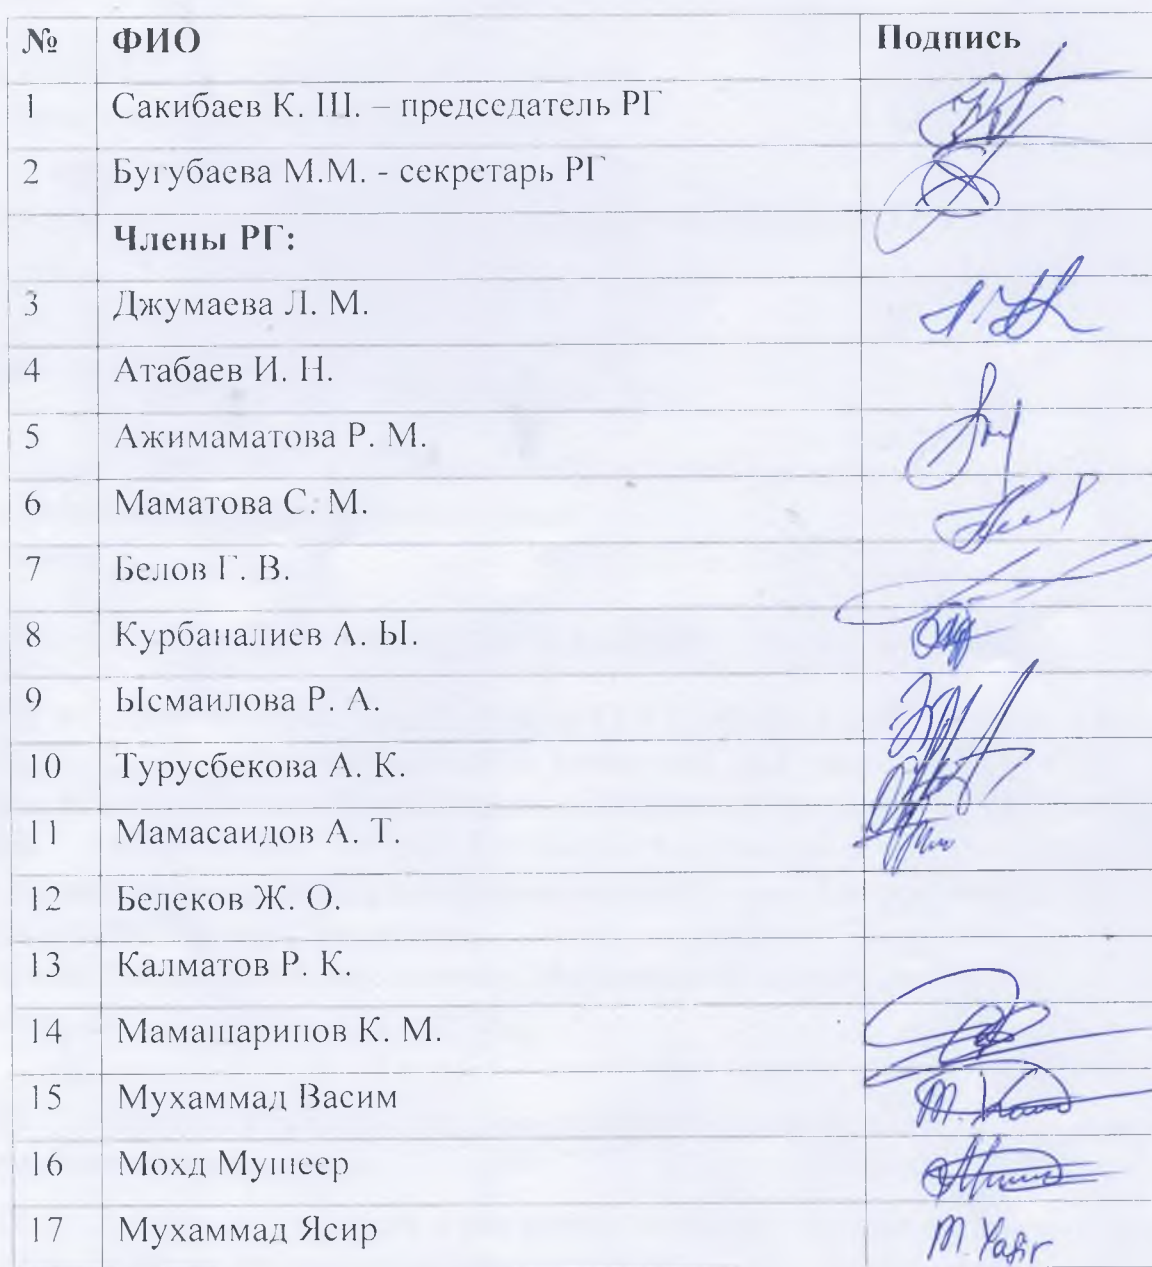 № ФИО Подпись
1 Сакибаев К. Ш. – председатель РГ
2 Бугубаева М.М. - секретарь РГ
Члены РГ:
3 Джумаева Л. М.
4 Атабаев И. Н.
5 Ажимаматова Р. М.
6 Маматова С. М.
7 Белов Г. В.
8 Курбаналиев А. Ы.
9 Ысмаилова Р. А.
10 Турусбекова А. К.
11 Мамасаидов А. Т.
12 Белеков Ж. О.
13 Калматов Р. К.
14 Мамашарипов К. М.
15 Мухаммад Васим M.
16 Мохд Мушеер
17 Мухаммад Ясир M. Yasir